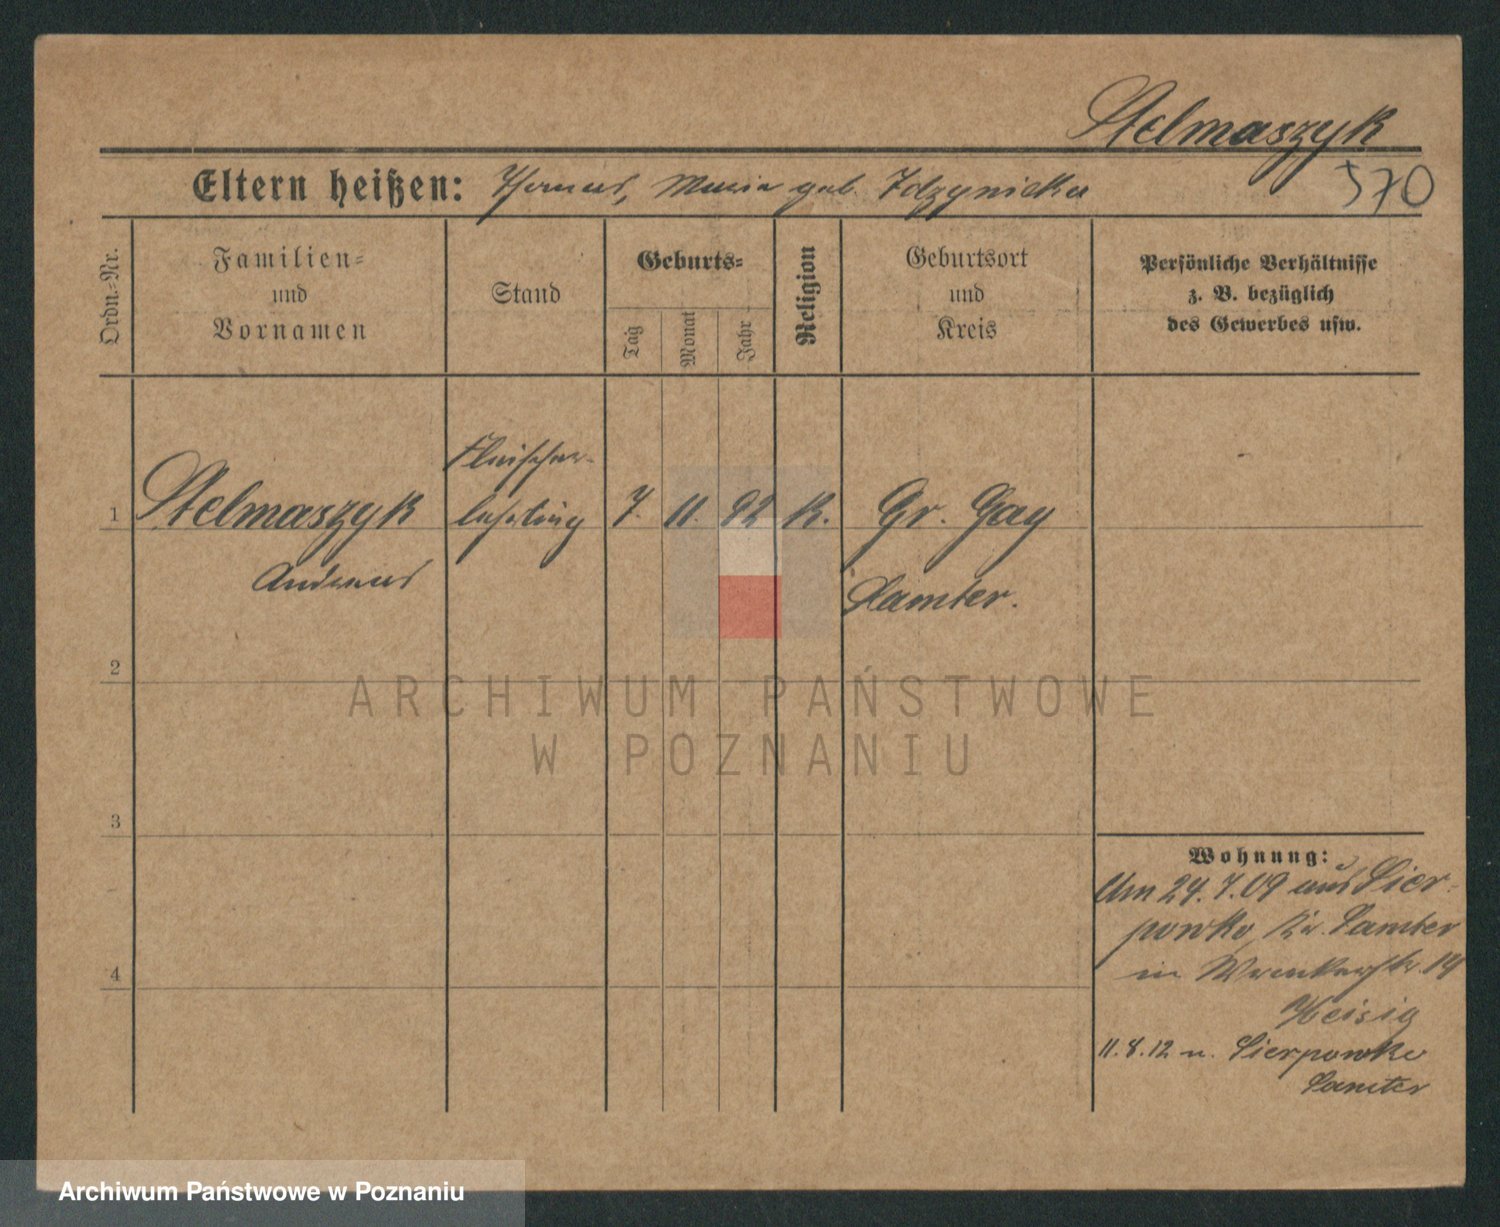 Stelmaszyk
Eltern heißen: Thomas, Maria geb. Idzynicka
570
Ordn.-Nr.
Familien-
und
Vornamen
Stand
Geburts-
Tag
Monat
Jahr
Religion
Geburtsort
und
Kreis
Persönliche Verhältnisse
z. B. bezüglich
des Gewerbes usw.
Fleischer-
1 Stelmaszyk lehrling 7. 11. 92 K. Gr. Gay
Andreas Samter.
2
ARCHIWUM PAŃSTWOWE
W POZNANIU
3
Wohnung:
Am 24.7.09 aus Sier-
powko, Kr. Samter
4
in 14
Heisig
11.8.12 n. Sierpowko
Samter
Archiwum Państwowe w Poznaniu